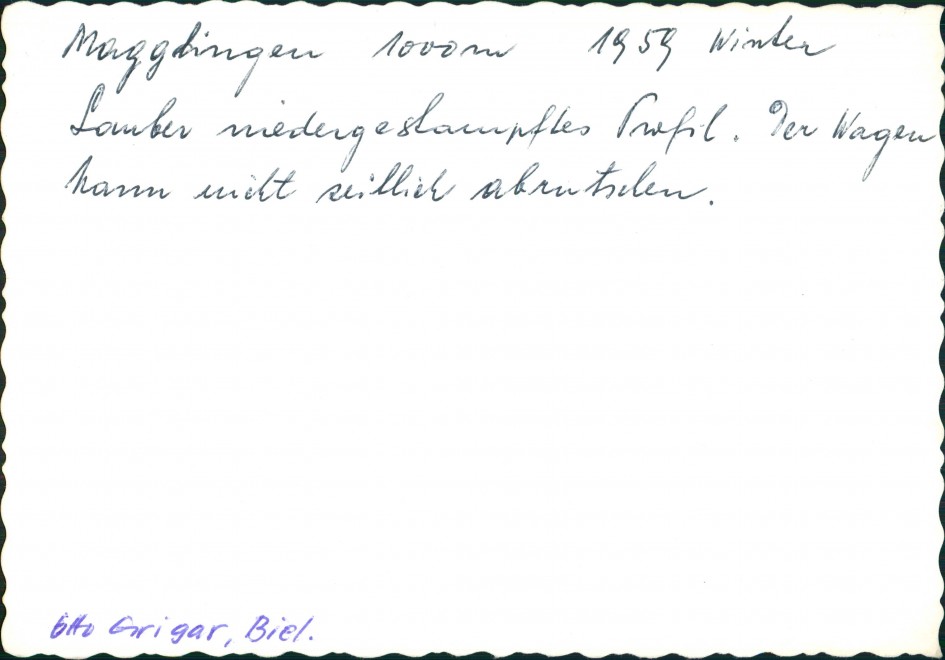 Magglingen 1000m 1959 Winter
Sauber niedergestampftes Profil. Der Wagen
kann nicht seitlich abrutschen.
Otto Grigar, Biel.